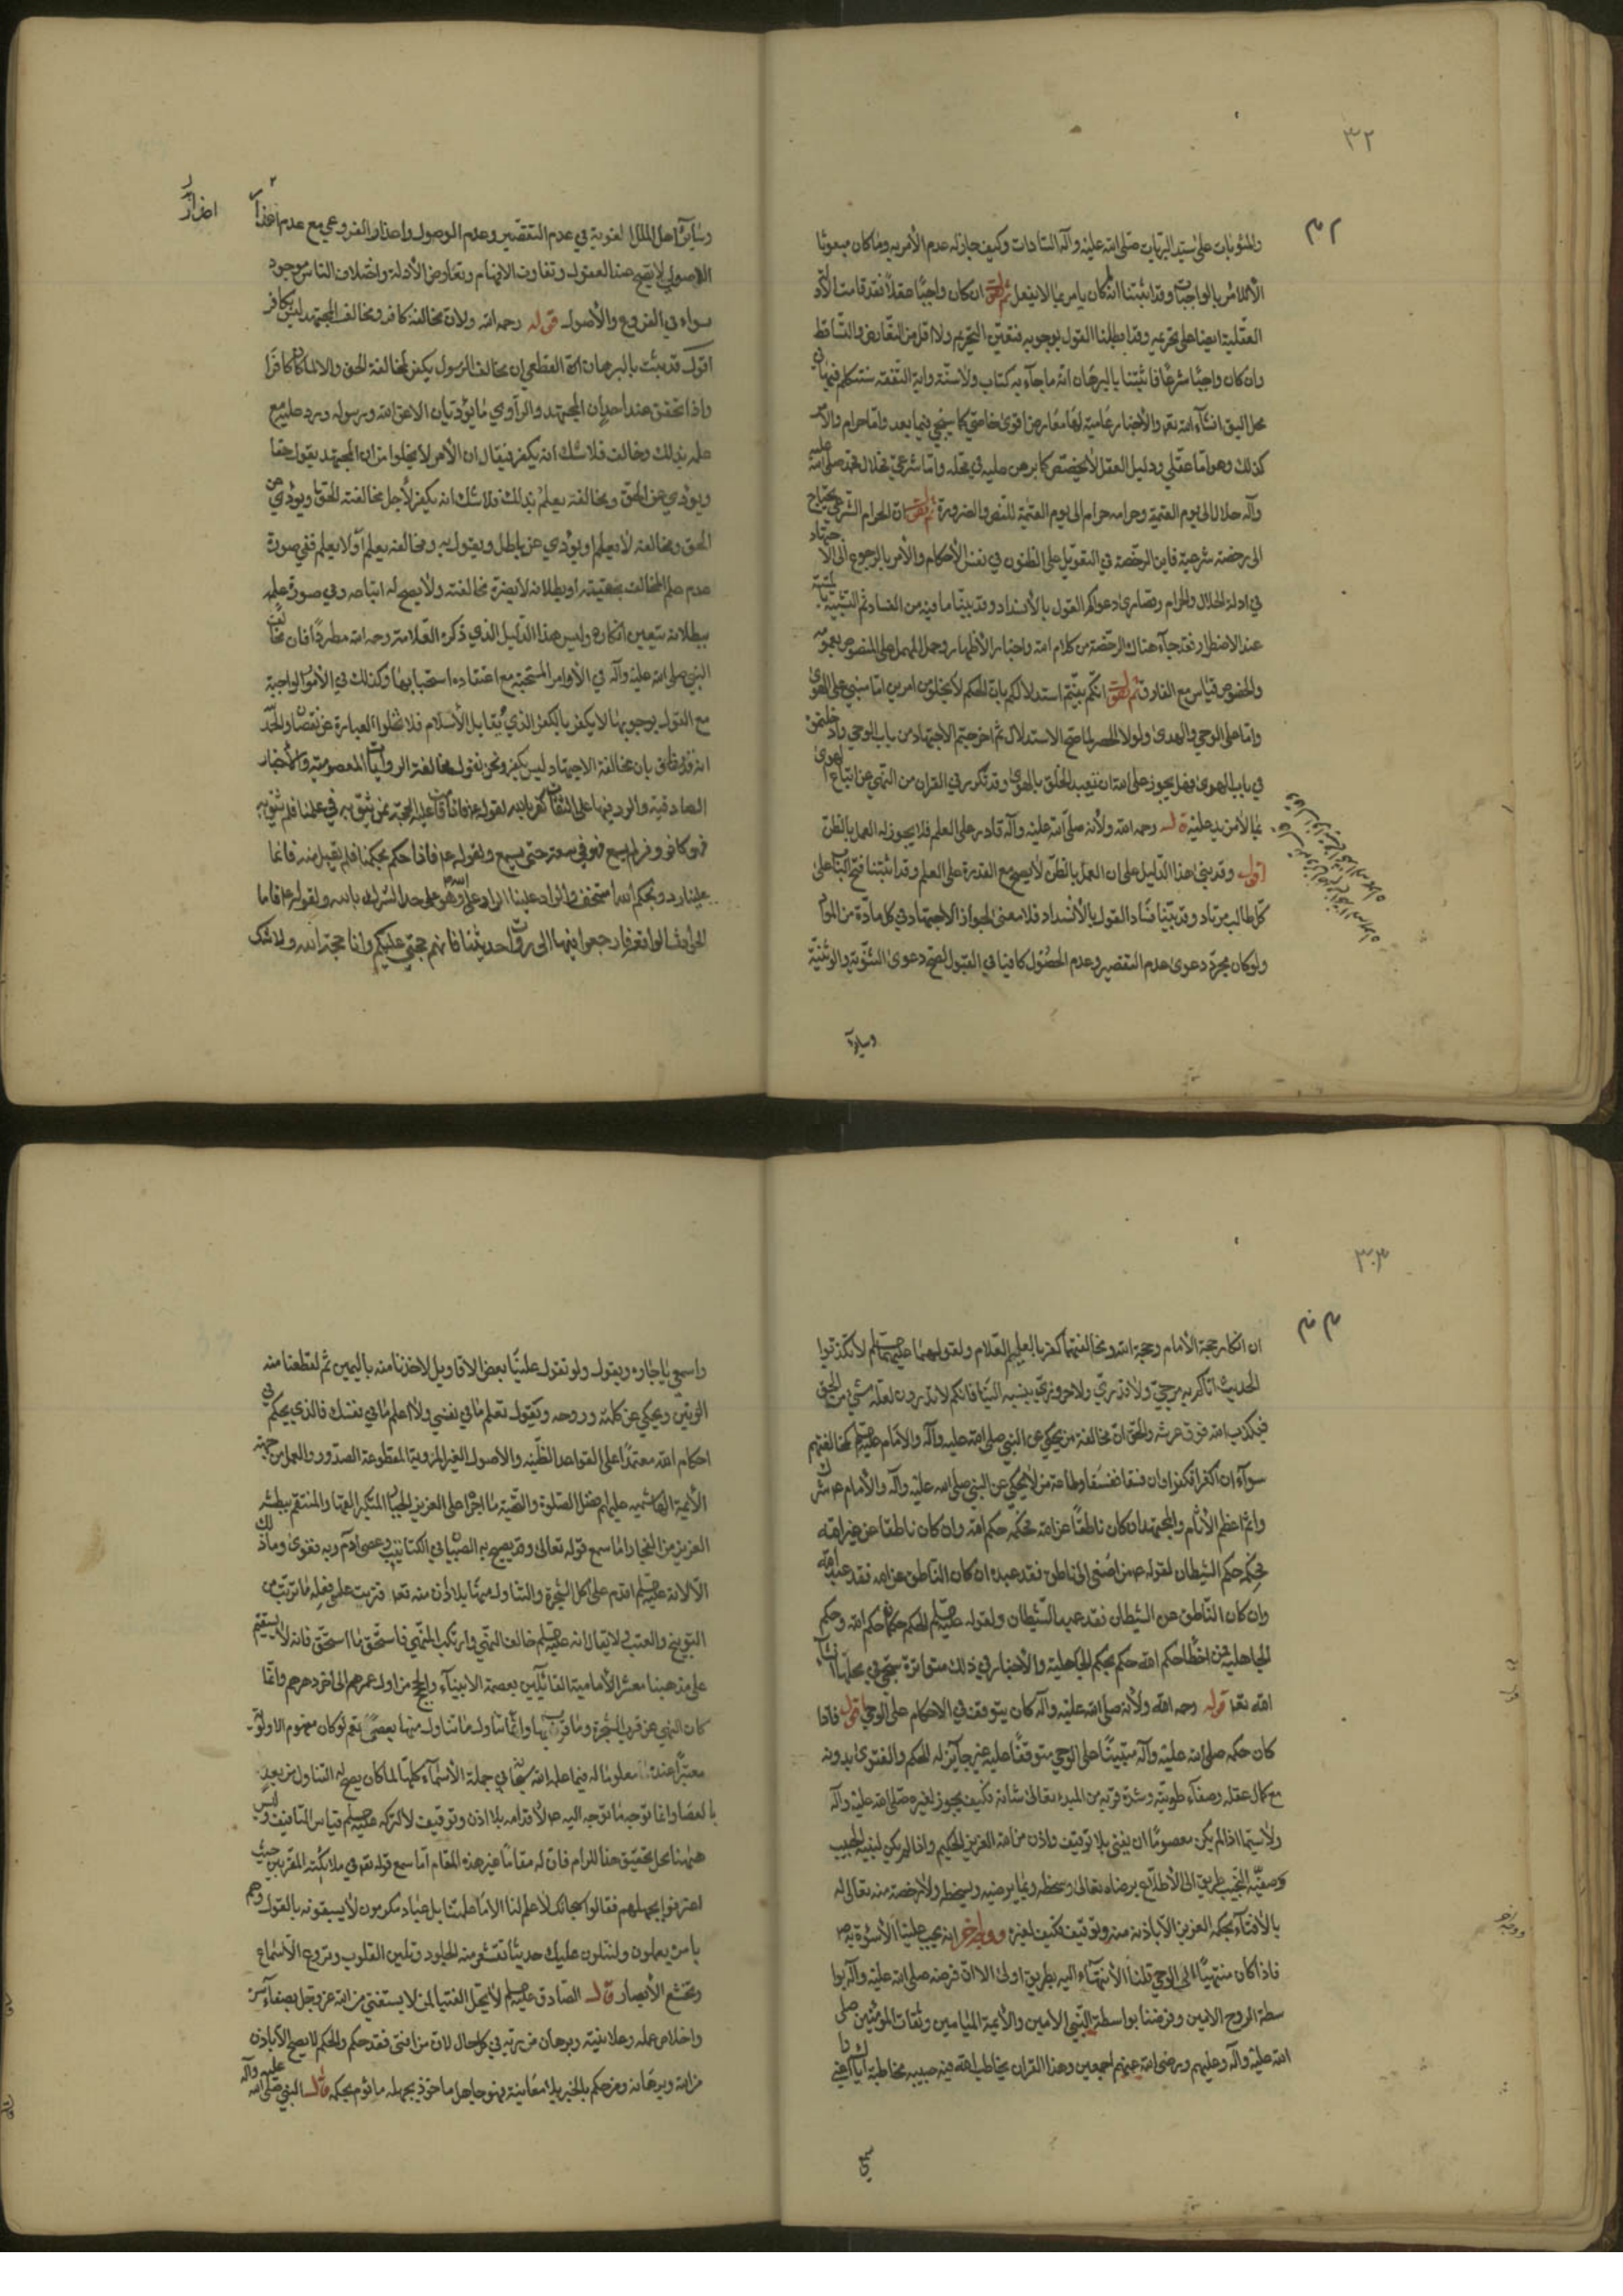 ٣٢
والمثوبات على سيد البريات صلى الله عليه وآله السادات وكيف جاز له عدم الأمر به وما كان مبعوثا
الا للأمر بالواجبات وقد اثبتنا انه كان يأمر بما لا يفعل ثم نقول ان كان واجبا عقلا فقد قامت الأدلة
العقلية ايضا على تحريمه وقد ابطلنا القول بوجوبه فتعين التحريم ولا اقل من التعارض والتساقط
وان كان واجبا شرعا فاثبتنا بالبرهان انه ما جاء به كتاب ولا سنة وآية التفقه سنتكلم فيها في
محل اليق انشاء الله تعالى والأخبار عامية لها معارض اقوى خاصي كما سيجئ فيما بعد واما حرام والأمر
كذلك وهو اما عقلي ودليل العقل لا يخصص كما برهن عليه في محله واما شرعي فحلال محمد صلى الله عليه
وآله حلال الى يوم القيمة وحرامه حرام الى يوم القيمة للنص والضرورة ثم نقول ان الحرام الشرعي يحتاج
الى رخصة شرعية فاين الرخصة في التعويل على الظنون في نفس الأحكام والأمر بالرجوع الى الاجتهاد
في ادلة الحلال والحرام وقصارى دعواكم القول بالأنسداد وقد بينا ما فيه من الفساد ثم التشبيه بالميتة
عند الاضطرار فقد جاء هناك الرخصة من كلام الله واخبار الأطهار وحمل المهمل على المنصوص بعمومه
والخصوص قياس مع الفارق ثم نقول انكم بنيتم استدلالكم بان الحكم لا يخلو من امرين اما مبني على الهوى
واما على الوحي والهدى ولولا الحصر لما صح الاستدلال ثم اخرجتم الاجتهاد من باب الوحي وادخلتموه
في باب الهوى فهل يجوز على الله ان يتعبد الخلق بالهوى وقد تكرر في القران من النهي عن اتباع الهوى
بما لا مزيد عليه قوله رحمه الله ولأنه صلى الله عليه وآله قادر على العلم فلا يجوز له العمل بالظن
اقول وقد بني هذا الدليل على ان العمل بالظن لا يصح مع القدرة على العلم وقد اثبتنا فتح الباب على
كل طالب مرتاد وقد بينا فساد القول بالأنسداد فلا معنى لجواز الاجتهاد في كل مادة من المواد
ولو كان مجرد دعوى عدم التقصير وعدم الحصول كافيا في القبول لصح دعوى الثنوية والوثنية
وساير
وساير اهل الملل الغوية في عدم التقصير وعدم الوصول واعذار الفروعي مع عدم اعذار
الاصولي لا يصح عند العقول وتفاوت الافهام وتعارض الأدلة واختلاف الناس موجود
سواء في الفروع والأصول قوله رحمه الله ولان مخالفه كافر ومخالف المجتهد ليس بكافر
اقول قد ثبت بالبرهان القطعي ان مخالف الرسول يكفر لمخالفة الحق والا لما كان كافرا
واذا تحقق عند احد ان المجتهد والراوي ما يؤديان الا عن الله ورسوله ورد عليه مع
علمه بذلك وخالف فلا شك انه يكفر فيقال ان الأمر لا يخلوا من ان المجتهد يقول حقا
ويؤدي عن الحق ومخالفه يعلم بذلك فلا شك انه يكفر لأجل مخالفته الحق او يؤدي عن
الحق ومخالفه لا يعلم او يؤدي عن باطل ويقول به ومخالفه يعلم او لا يعلم ففي صورة
عدم علم المخالف بحقيته او بطلانه لا يضره مخالفته ولا يصح له اتباعه وفي صورة علمه
ببطلانه يتعين انكاره وليس هذا الدليل الذي ذكره العلامة رحمه الله مطردا فان مخالف
النبي صلى الله عليه وآله في الأوامر المستحبة مع اعتقاده استحبابها وكذلك في الأمور الواجبة
مع القول بوجوبها لا يكفر بالكفر الذي يقابل الأسلام فلا تخلوا العبارة عن نقصان والحمد
لله فوفاق بان مخالفة الاجتهاد ليس بكفر ونحن نقول مخالفة الروايات المعصومية والأخبار
الصادقية والرد فيها على الثقات كفر بالله
فهو كافر ومن لم يسمع فهو في سعة حتى يسمع ولقوله ع فاذا حكم بحكمنا فلم يقبل منه فانما
بحكم الله استخف وعلينا رد والراد علينا الراد على الله وهو على حد الشرك بالله ولقوله ع فاما
الحوادث الواقعة فارجعوا فيها الى رواة احاديثنا فانهم حجتي عليكم وانا حجة الله ولا شك
٣٣
ان انكار حجة الأمام وحجة الله ومخالفتهما كفر بالعليم العلام ولقولهما عليهما السلم لا تكذبوا
الحديث اتاكم به مرجي ولا قدري ولا حروري ينسبه الينا فانكم لا تدرون لعله شيء من الحق
فيكذب الله فوق عرشه والحق ان مخالفة من يحكي عن النبي صلى الله عليه وآله والأمام عليه السلم كمخالفتهم
سواء ان كفرا فكفرا وان فسقا ففسقا وطاعة من لا يحكي عن النبي صلى الله عليه وآله والأمام ع شرك
واثم اعظم الأثام والمجتهد ان كان ناطقا عن الله فحكمه حكم الله وان كان ناطقا عن غير الله
فحكمه حكم الشيطان لقوله ع من اصغى الى ناطق فقد عبده ان كان الناطق عن الله فقد عبد الله
وان كان الناطق عن الشيطان فقد عبد الشيطان ولقوله عليه السلم الحكم حكمان حكم الله وحكم
الجاهلية فمن اخطأ حكم الله حكم بحكم الجاهلية والأخبار في ذلك متواترة ستجئ في محلها انشاء
الله تعا قوله رحمه الله ولأنه صلى الله عليه وآله كان يتوقف في الاحكام على الوحي اقول فاذا
كان حكمه صلى الله عليه وآله مبتنيا على الوحي متوقفا عليه غير جايز له الحكم والفتوى بدونه
مع كمال عقله وصفاء طويته وشدة قربه من المبدء تعالى شانه فكيف يجوز لغيره صلى الله عليه وآله
ولا سيما اذا لم يكن معصوما ان يفتي بلا توقيف واذن من الله العزيز الحكيم واذا لم يكن لنبيه الحبيب
وصفيه النجيب طريق الى الأطلاع برضاه تعالى وسخطه وبما يرضيه ويسخطه ولا رخصة منه تعالى له
بالأفتاء بحكمه العزيز الا باذنه منه وتوقيف فكيف لغيره ووجه اخر انه يجب علينا الأسوة به ص
فاذا كان منتهيا الى الوحي قلنا الأنتهاء اليه بطريق اولى الا ان فرضه صلى الله عليه وآله بوا
سطة الروح الامين وفرضنا بواسطة النبي الامين والأئمة الميامين وثقات المؤمنين صلى
الله عليه وآله وعليهم ورضي الله عنهم اجمعين وهذا القران يخاطب الله فيه حبيبه مخاطبة اياك اعني
واسمعي يا جاره ويقول ولو تقول علينا بعض الاقاويل لاخذنا منه باليمين ثم لقطعنا منه
الوتين ويحكي عن كلمته وروحه ويقول تعلم ما في نفسي ولا اعلم ما في نفسك فالذي يحكم في
احكام الله معتمدا على القواعد الظنية والاصول الغير المروية المقطوعة الصدور والعمل من جهة
الأئمة الهاشمية عليهم افضل الصلوة والتحية ما اجراه على العزيز الجبار المتكبر القهار والمنتقم ببطشه
العزيز من الفجار اما سمع قوله تعالى وعصى آدم ربه فغوى وما ذلك
الا لانه عليه السلم اقدم على اكل الشجرة والتناول منها بلا اذن منه تعا فترتب على فعله ما ترتب من
التوبيخ والعتب لا يقال انه عليه السلم خالف النهي وارتكب المنهي فاستحق ما استحق فانه لا يستقيم
على مذهبنا معشر الأمامية القائلين بعصمة الانبياء والحجج من اول عمرهم الى اخر دهرهم وانما
كان النهي عن قرب الشجرة وما قرب بها وانما تناول ما تناول منها بعصى نعم لو كان مفهوم الاولوية
معتبرا عنده معلوما له فيما علمه الله سبحانه في جملة الأسماء كلها لما كان يصح له التناول من بعيد
بالعصا وانما توجه ما توجه اليه ع لأقدامه بلا اذن وتوقيف لا لتركه عليه السلم قياس التافيف وليس
ههنا محل تحقيق هذا المرام فان له مقاما غير هذه المقام اما سمع قوله تعا في ملائكته المقربين حيث
اعترفوا بجهلهم فقالوا سبحانك لا علم لنا الا ما علمتنا بل عباد مكرمون لا يسبقونه بالقول وهم
بامره يعملون ولنتلون عليك حديثا تقشعر منه الجلود وتلين القلوب وتروع الأسماع
وتخشع الأبصار قال الصادق عليه السلم لا يحل الفتيا لمن لا يستفتي من الله عز وجل بصفاء سره
واخلاص عمله وعلانيته وبرهان من ربه في كل حال لان من افتى فقد حكم والحكم لا يصح الا باذن
من الله وبرهانه ومن حكم بالخبر بلا معاينة فهو جاهل ماخوذ بجهله ماثوم بحكمه قال النبي صلى الله عليه وآله